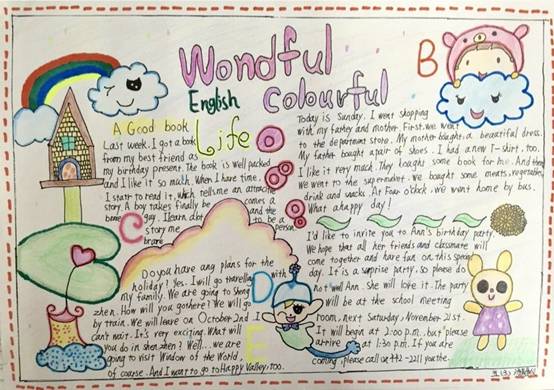 Wondful
Colourful
English
Life
A Good book
Last week. I got a book
from my best friend as
my birthday present. The book is well packed
and I like it so much. When I have time,
I start to read it, which tells me an attractive
story. A boy takes finally be comes a
brave guy. I learn a lot and the
story me to be a
brave person.
B
Today is Sunday. I went shopping
with my father and mother. First, we went
to the department store. My mother bought a beautiful dress.
My father bought a pair of shoes. I had a new T-shirt, too.
I like it very much. They bought some book for me. And then
We went to the supermarket. we bought some meats, vegetables,
drink and snacks. At Four o'clock, we went home by bus.
What a happy day!
C
Do you have any plans for the
holiday? Yes. I will go travelling with
my family. We are going to Sheng
zhen. How will you go there? We will go
by train. We will leave on October 2nd I
can't wait. It's very exciting. What will
you do in shen zhen? Well... we are
going to visit Window of the World,
of course. And I want to go to Happy Valley, too.
D
E
I'd like to invite you to Ann's birthday party.
We hope that all her friends and classmate will
come together and have fun on this special
day. It is a surprise party, so please do
not tell Ann. She will love it. The party
will be at the school meeting
room, next Saturday, November 21st.
It will begin at 2:00 p.m. but please
arrive at 1:30 p.m. If you are
coming, please call on